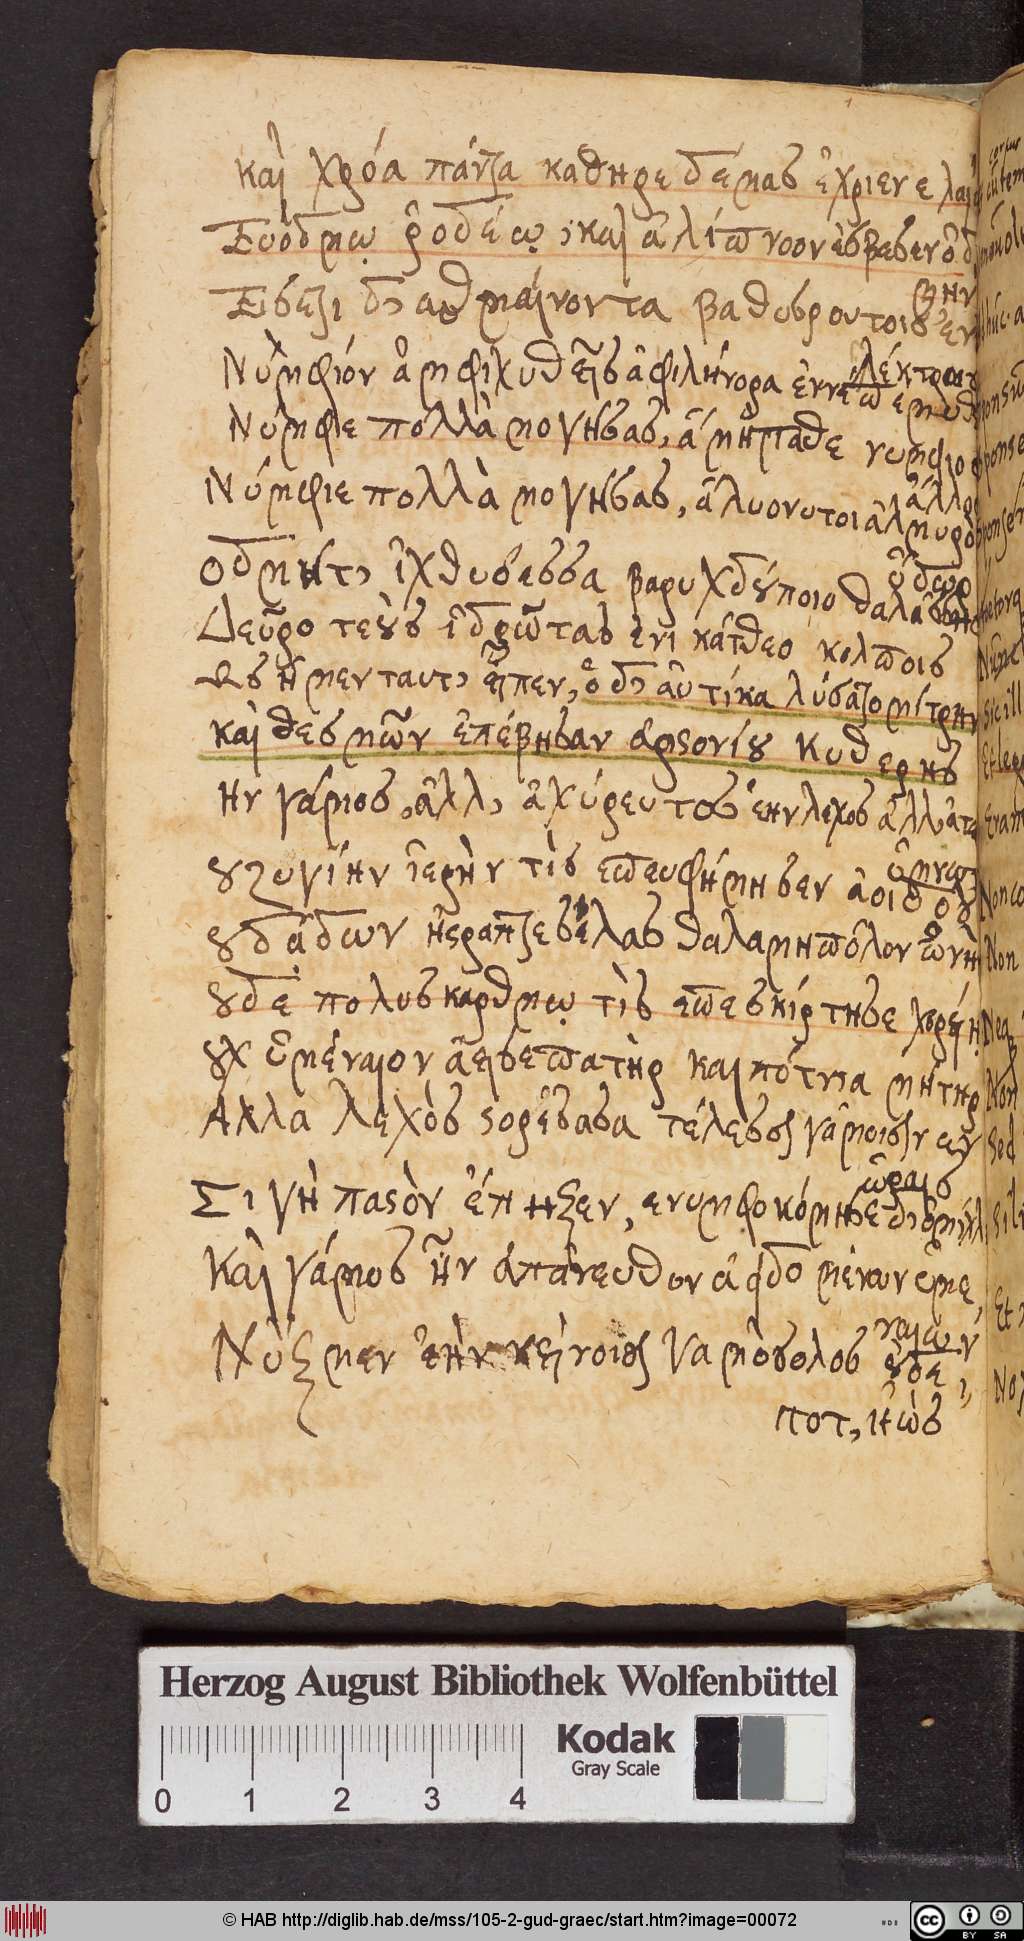 καὶ χρόα πάντα κάθηρε δέμας ἔχριεν ἐλαίῳ
Εὐόδμῳ ῥοδέῳ, καὶ ἁλίπνοον ἔσβεσεν ὀδμήν
Εἰσέτι δ' ἀσθμαίνοντα βαθυστρώτοις ἐνὶ λέκτροις
Νυμφίον ἀμφιχυθεῖσα φιλήνορα ἔννεπε μῦθον
Νυμφίε πολλὰ μογήσας, ἃ μὴ πάθε νυμφίος ἄλλος
Νυμφίε πολλὰ μογήσας, ἅλις νύ τοι ἁλμυρὸν ὕδωρ
Οδμή τ' ἰχθυόεσσα βαρυγδούποιο θαλάσσης
Δεῦρο τεοὺς ἱδρῶτας ἐνὶ κάτθεο κόλποις
Ως ἡ μὲν ταῦτ' εἶπεν, ὁ δ' αὐτίκα λύσατο μίτρην
καὶ θεσμῶν ἐπέβησαν ἀριστονόου Κυθερείης
Ην γάμος, ἀλλ' ἀχόρευτος ἔην λέχος ἀλλ' ἄτερ ὕμνων
οὐ ζυγίην ἱερὴν τὶς ἐπευφήμησεν ἀοιδὸς
οὐ δαΐδων ἤστραπτε σέλας θαλαμηπόλον εὐνὴν
οὐδὲ πολυσκάρθμῳ τὶς ἐπεσκίρτησε χορείῃ
οὐχ ὑμέναιον ἄεισε πατὴρ καὶ πότνια μήτηρ
Αλλα λεχὸς στορέσασα τελεσσιγάμοισιν ἐν ὥραις
Σιγὴ παστὸν ἔπηξεν, ἐνυμφοκόμησε δ' ὀμίχλη
Καὶ γάμος ἦν ἀπάνευθεν ἀειδομένων ὑμεναίων
Νὺξ μὲν ἔην κείνοισι γαμοστόλος οὐδέ
ποτ' ἠὼς
Herzog August Bibliothek Wolfenbüttel
Kodak
Gray Scale
0 1 2 3 4
© HAB http://diglib.hab.de/mss/105-2-gud-graec/start.htm?image=00072
CC BY SA